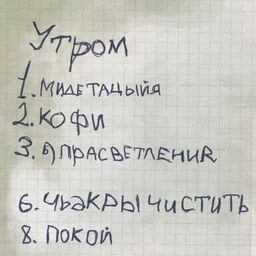 Утром
1. МИДЕТАЦЫЙЯ
2. КОФИ
3. Б) ПРАСВЕТЛЕНИЯ
6. ЧЬАКРЫ ЧИСТИТЬ
8. ПОКОЙ